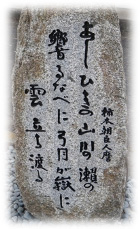 柿本朝臣人麿
あしひきの山川の瀬の
響るなべに弓月が嶽に
雲立ち渡る